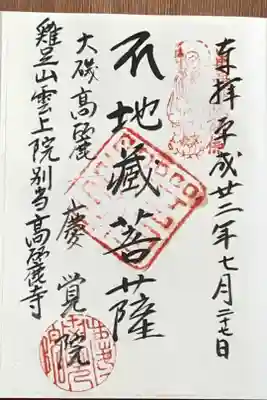 奉拝 平成廿二年七月二十七日
石地蔵菩薩
大磯高麗 慶覚院
雞足山雲上院別当高麗寺